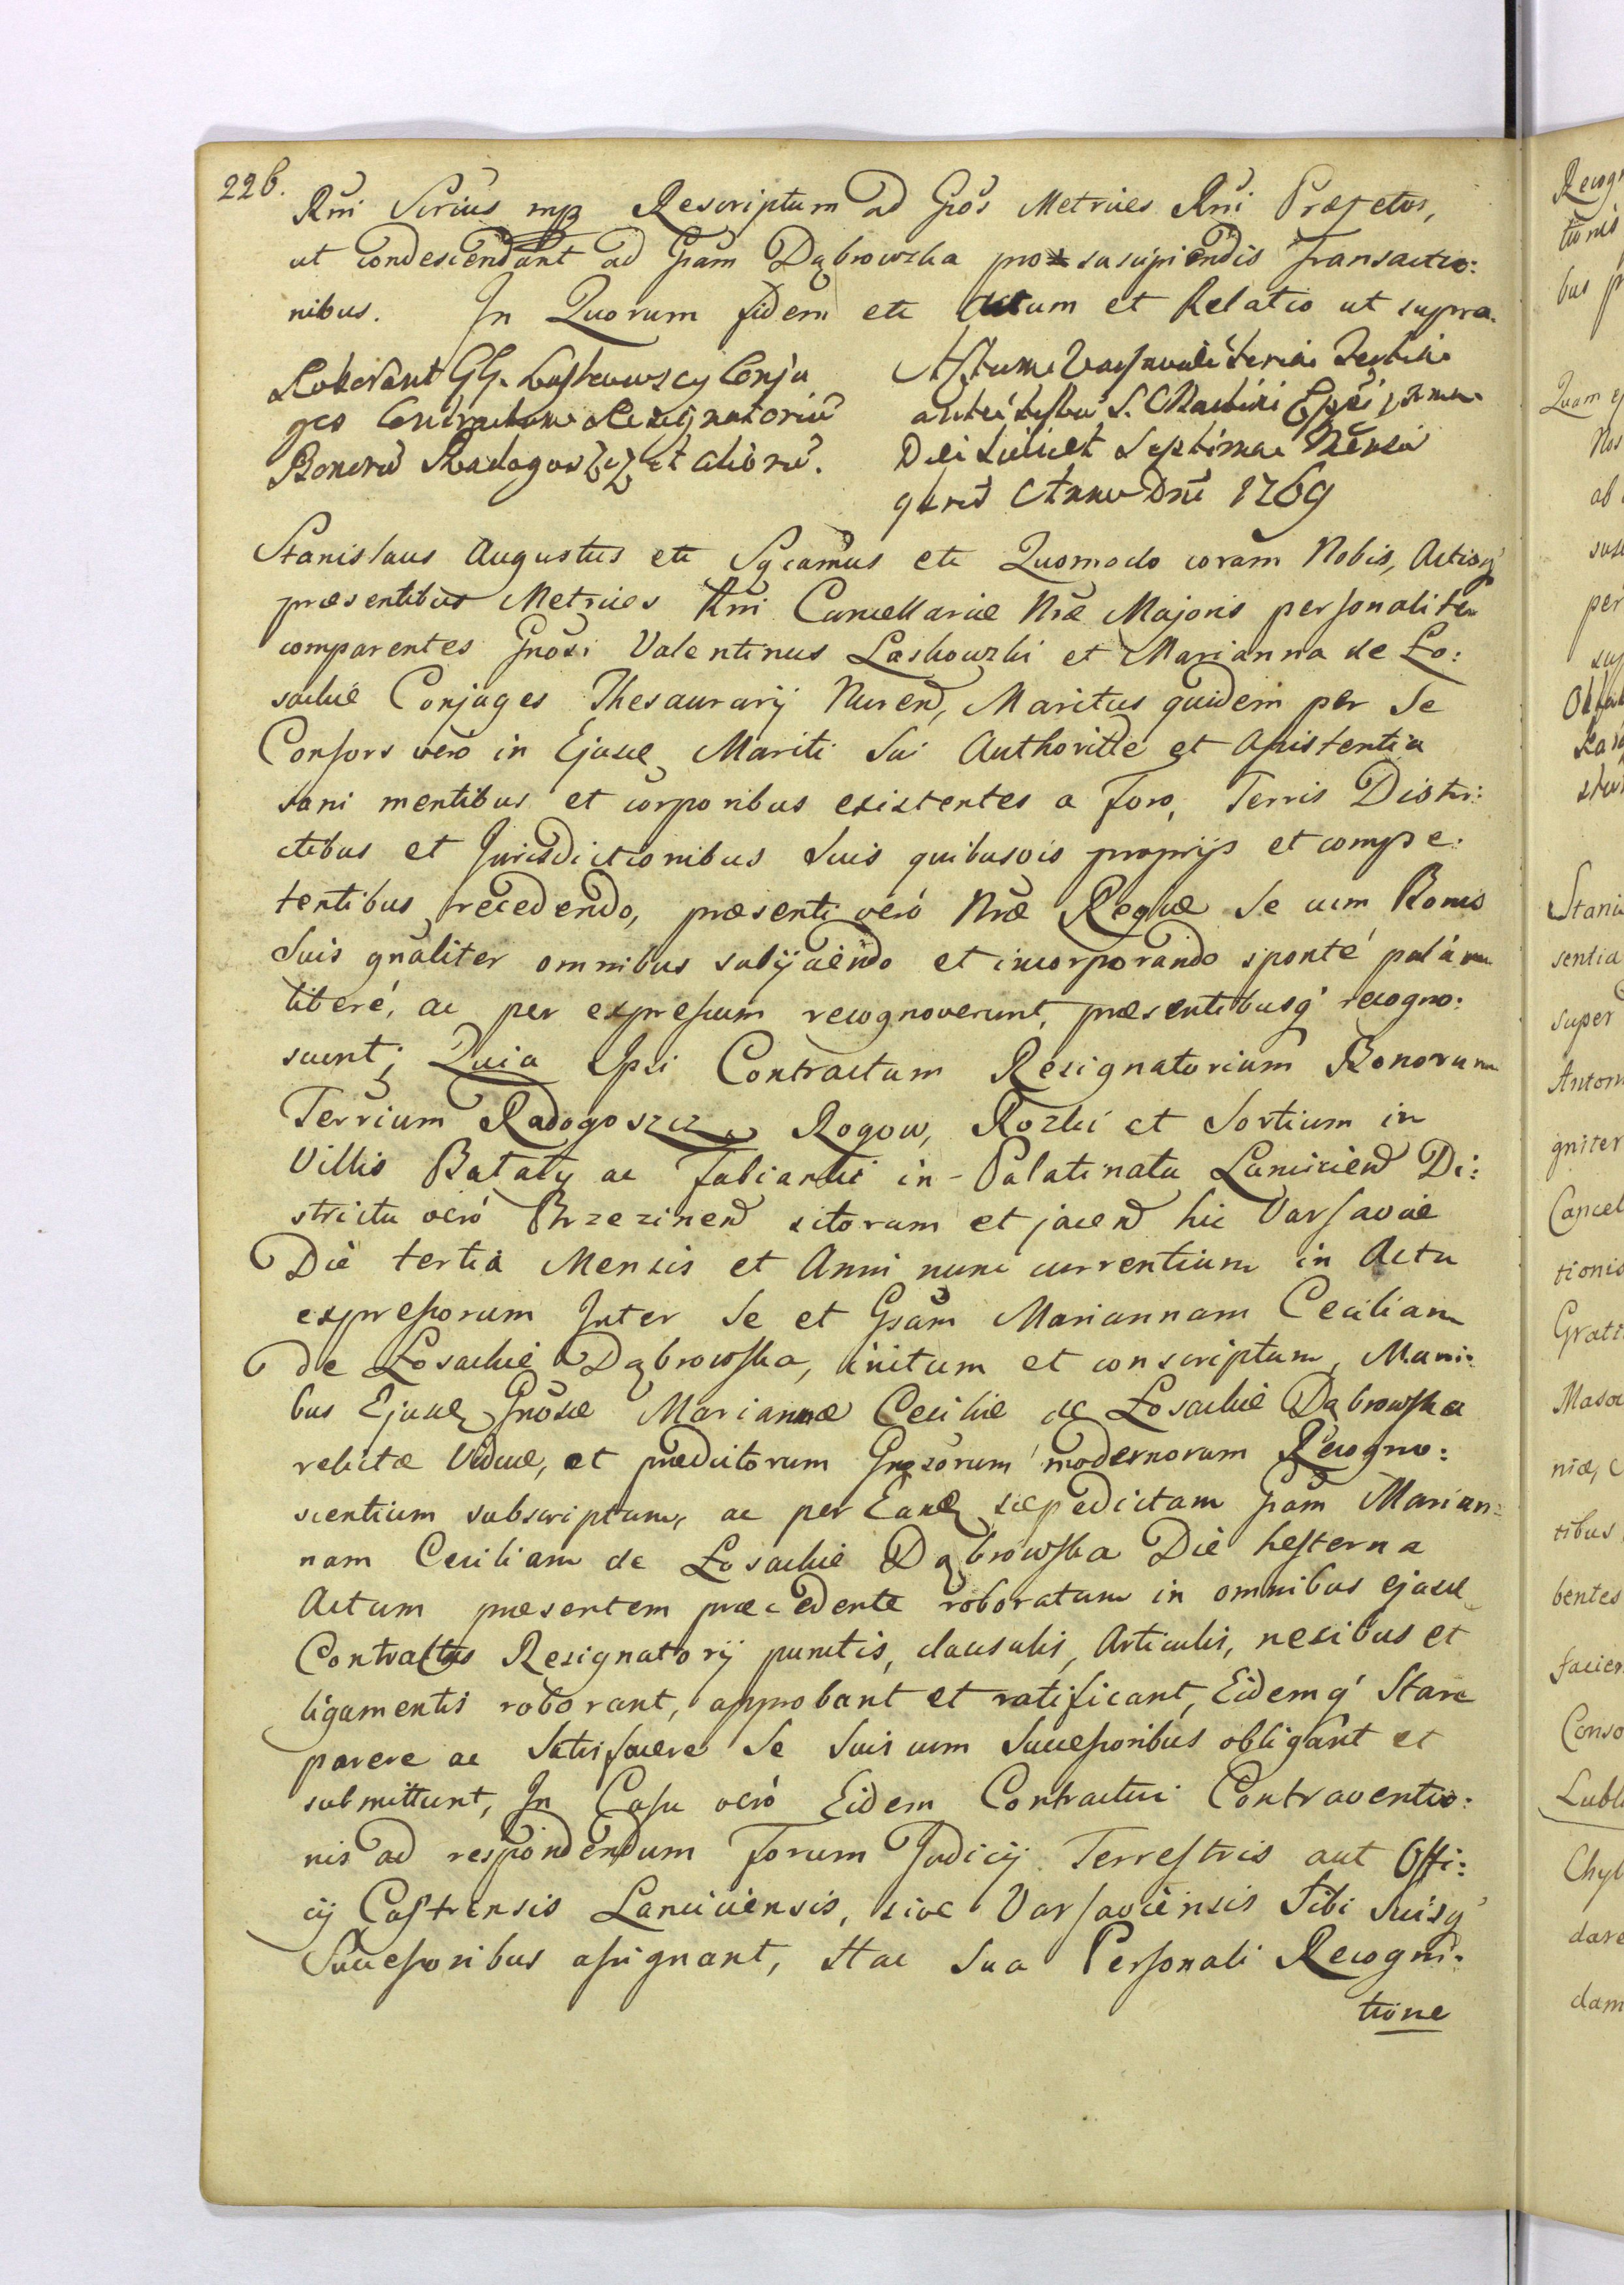 226.
Rñi Scriús mp Rescriptum ad Gñós Metrices Rñi Præfetos,
ut condescendant ad Gñám Dąbrowzka pro suscipiendis transactio:
nibus. In Quorum fidem etc Actum et Relatio ut supra.
Roborant GG. Laskowscy Conju
ges Contractum Resignatoriũ
Bonorũ Radogoszcz et aliorũ.
Actum Varsaviæ feria
ante festum S. Martini
Dei scilicet Septima Mensis
9bris Anno Dñi 1769
Stanislaus Augustus etc Sgcamus etc Quomodo coram Nobis, Actisq'
præsentibus Metrices Rñi Cancellariæ Nræ Majoris personaliter
comparentes Gñosi Valentinus Laskowzki et Marianna de Ło:
sackie Conjuges Thesaurarij Nuren, Maritus quidem per Se
Consors vero in Ejusd Mariti Sui Authoritte et Assistentia
sani mentibus et corporibus existentes a Foro, Terris Distri:
ctibus et Jurisdictionibus Suis quibusvis proprijs et compe:
tentibus recedendo, præsenti veró Nræ Regiæ Se cum Bonis
Suis gnäliter omnibus subijciendo et incorporando sponté palám
liberé, ac per expressum recognoverunt, præsentibusq' recogno:
scunt; Quia Ipsi Contractum Resignatorium Bonorum
Terrium Radogoszcz, Rogow, Rozki et Sortium in
Villis Bałaty ac Fabianki in Palatinatu Lancicien Di:
strictu veró Brzezinen sitorum et jacen hic Varsaviæ
Die tertia Mensis et Anni nunc currentium in Actu
expressorum Inter Se et Gsam Mariannam Cecilian
de Łosackie Dąbrowska, initum et conscriptum, Mani:
bus Ejusd Gnosæ Mariannæ Ceciliæ de Łosackie Dąbrowska
relictæ Viduæ, et prædictorum Gnosorum modernorum Recogno:
scentium subscriptum, ac per Eand sæpedictam Gsam Marian:
nam Ceciliam de Łosackie Dąbrowska Die hesterna
Actum præsentem præcedente roboratum in omnibus ejusd
Contractus Resignatorij punctis, clausulis, Articulis, nexibus et
ligamentis roborant, approbant et ratificant, Eidemq' Stare
parere ac Satisfacere Se Suis cum Successoribus obligant et
submittunt, In Casu veró Eidem Contractui Contraventio:
nis ad respondendum Forum Judicij Terrestris aut Offi:
cij Castrensis Lanciciensis, sive Varsaviensis Sibi Suisq'
Successoribus assignant, Hac Sua Personali Recogni:
tione